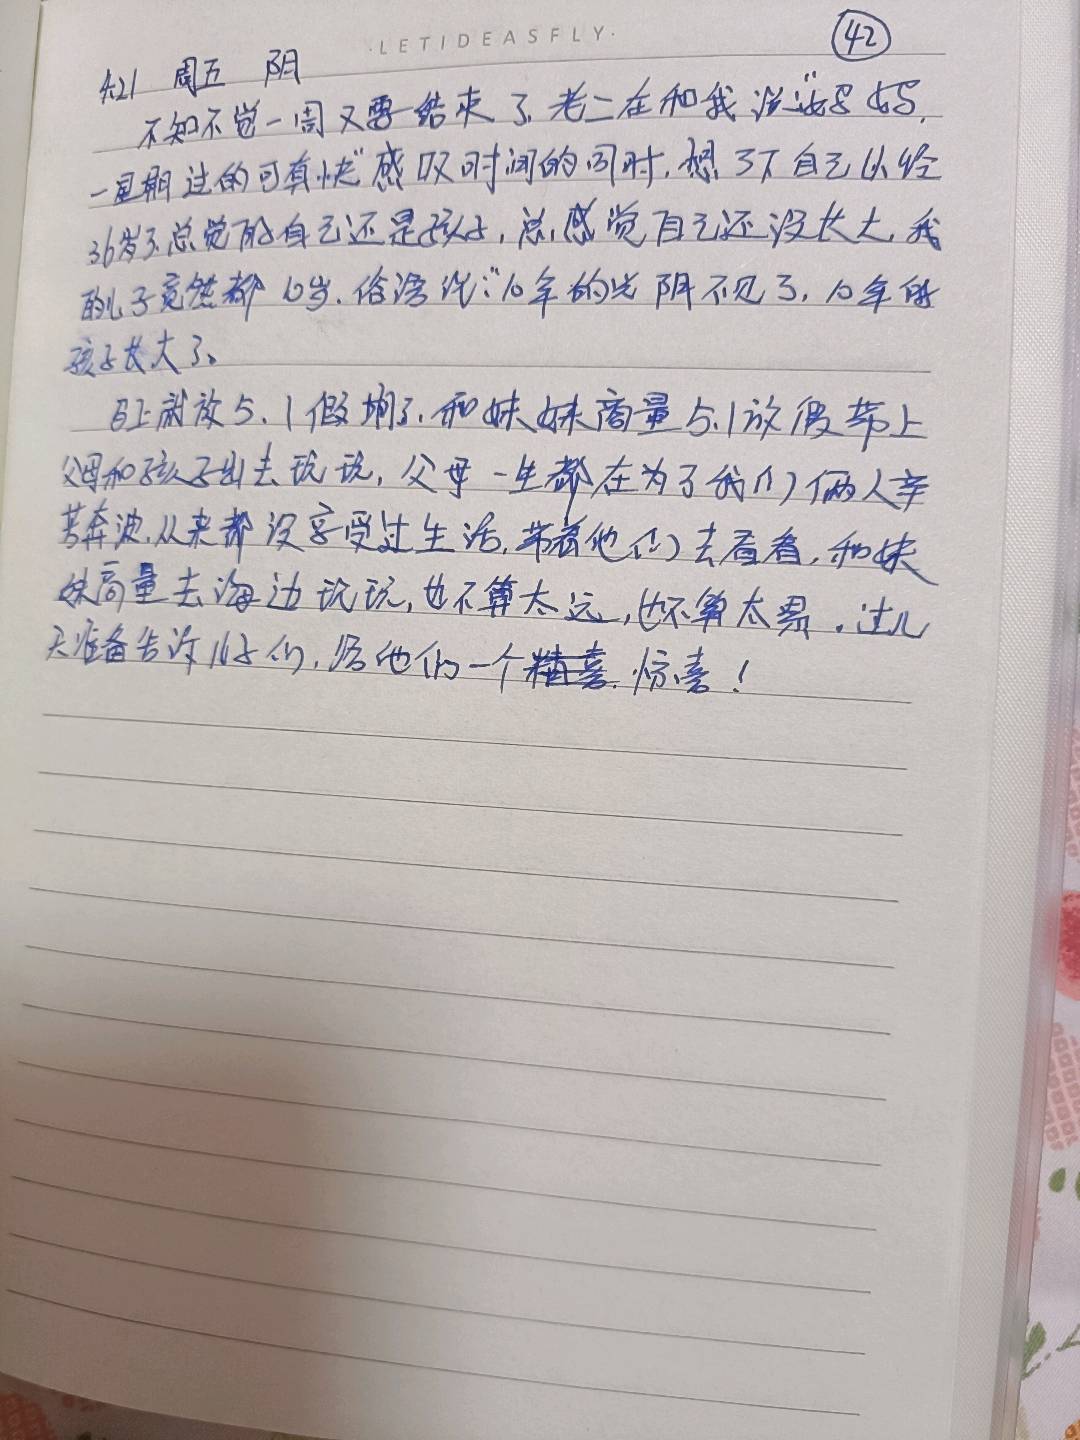 ·LETIDEASFLY·
42
4.21 周五 阴
不知不觉一周又要结束了.老二在和我说"妈妈,
一星期过的可真快"感叹时间的同时,想了下自己以经
36岁了总觉的自己还是孩子,总感觉自己还没长大,我
的儿子竟然都10岁.俗语说:"10年的光阴不见了,10年的
孩子长大了。
马上就放5.1假期了.和妹妹商量5.1放假带上
父母和孩子出去玩玩,父母一生都在为了我们俩人辛
苦奔波.从来都没享受过生活,带着他们去看看,和妹
妹商量去海边玩玩,也不算太远,也不算太累.过几
天准备告诉儿子们,给他们一个 惊喜!